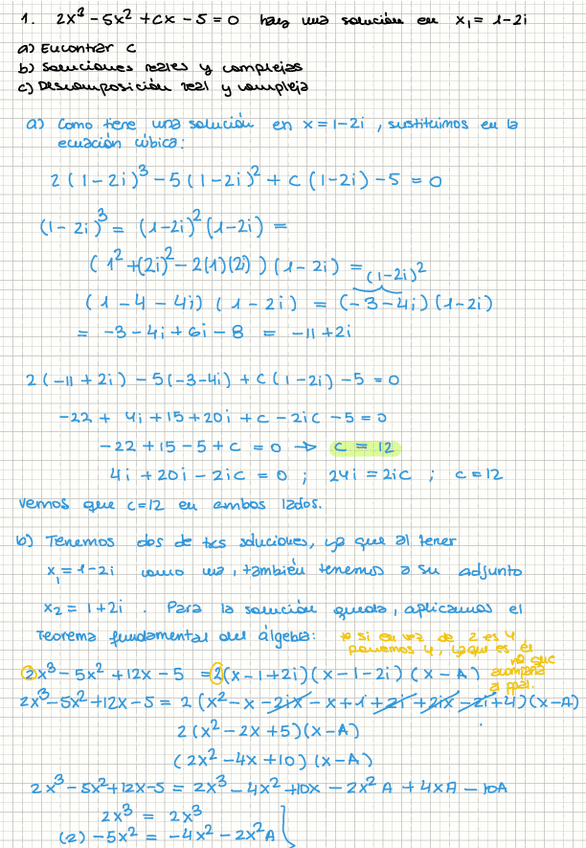 1. 2x³ - 5x² + cx - 5 = 0 hay una solución en x₁ = 1-2i
a) Encontrar c
b) Soluciones reales y complejas
c) Descomposición real y compleja
a) Como tiene una solución en x = 1-2i, sustituimos en la
ecuación cúbica:
2(1-2i)³ - 5(1-2i)² + c(1-2i) - 5 = 0
(1-2i)³ = (1-2i)²(1-2i) =
(1² + (2i)² - 2(1)(2i))(1-2i) = (1-2i)²
(1 - 4 - 4i)(1-2i) = (-3-4i)(1-2i)
= -3 - 4i + 6i - 8 = -11 + 2i
2(-11+2i) - 5(-3-4i) + c(1-2i) - 5 = 0
-22 + 4i + 15 + 20i + c - 2ic - 5 = 0
-22 + 15 - 5 + c = 0 → c = 12
4i + 20i - 2ic = 0 ; 24i = 2ic ; c = 12
Vemos que c=12 en ambos lados.
b) Tenemos dos de tres soluciones, ya que al tener
x₁ = 1-2i como una, también tenemos a su adjunto
x₂ = 1+2i . Para la solución queda, aplicamos el
Teorema fundamental del álgebra: * si en vez de 2 es 4
ponemos 4, ya que es el
nº que
2x³ - 5x² + 12x - 5 = 2(x-1+2i)(x-1-2i)(x-A) acompaña
a ppal.
2x³ - 5x² + 12x - 5 = 2(x² - x - 2ix - x + 1 + 2i + 2ix - 2i + 4)(x-A)
2(x² - 2x + 5)(x-A)
(2x² - 4x + 10)(x-A)
2x³ - 5x² + 12x - 5 = 2x³ - 4x² + 10x - 2x²A + 4xA - 10A
2x³ = 2x³
(2) -5x² = -4x² - 2x²A